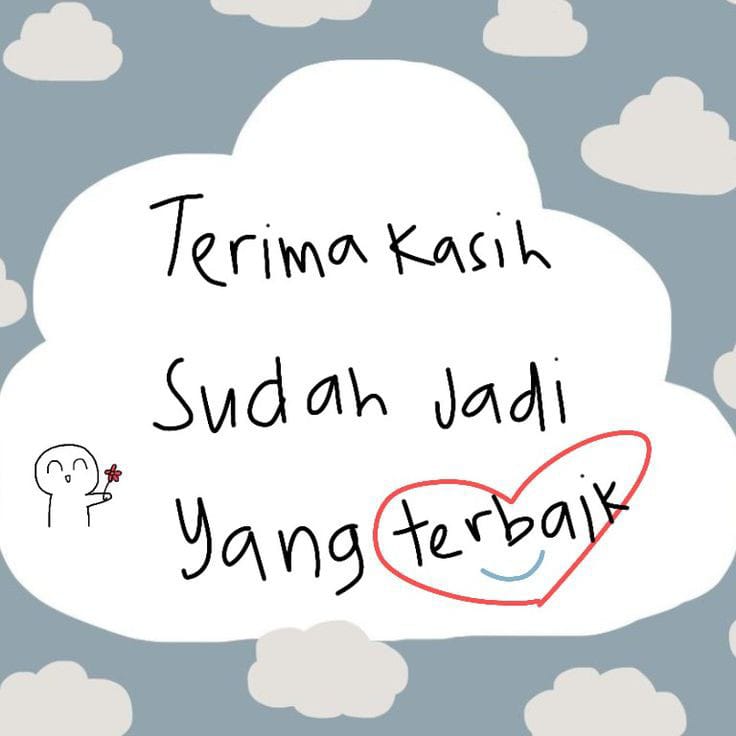 Terima Kasih
Sudah Jadi
yang terbaik